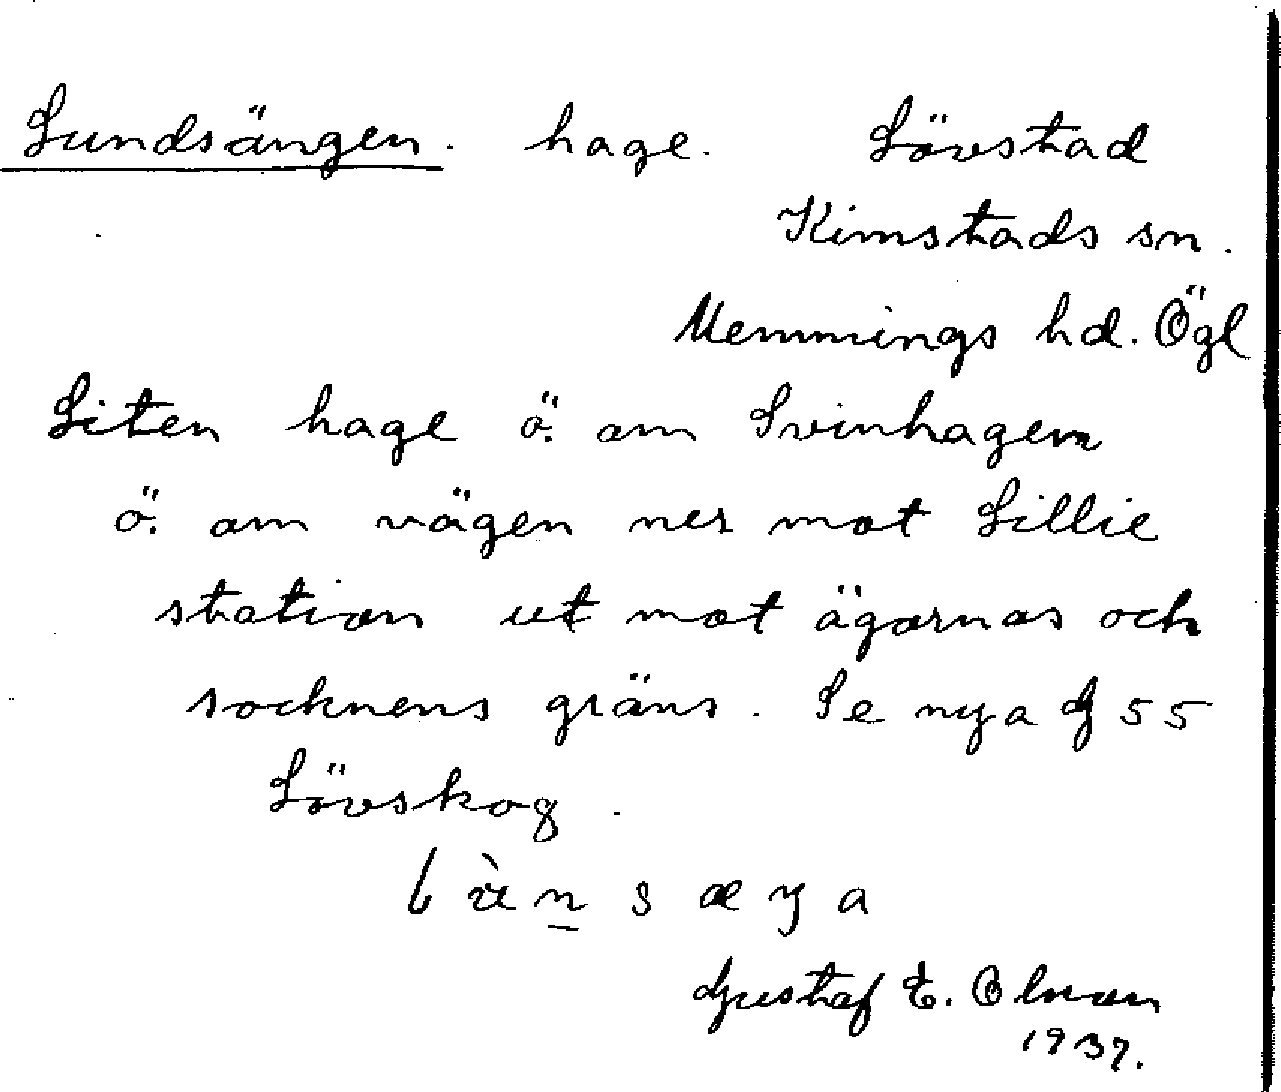 Lundsängen. hage. Lövstad
Kimstads sn.
Memmings hd. Ögl
Liten hage ö. om Svinhagen
ö. om vägen ner mot Lillie
station ut mot ägornas och
socknens gräns. Se nya G 55
Lövskog.
Gustaf E. Olsson
1937.